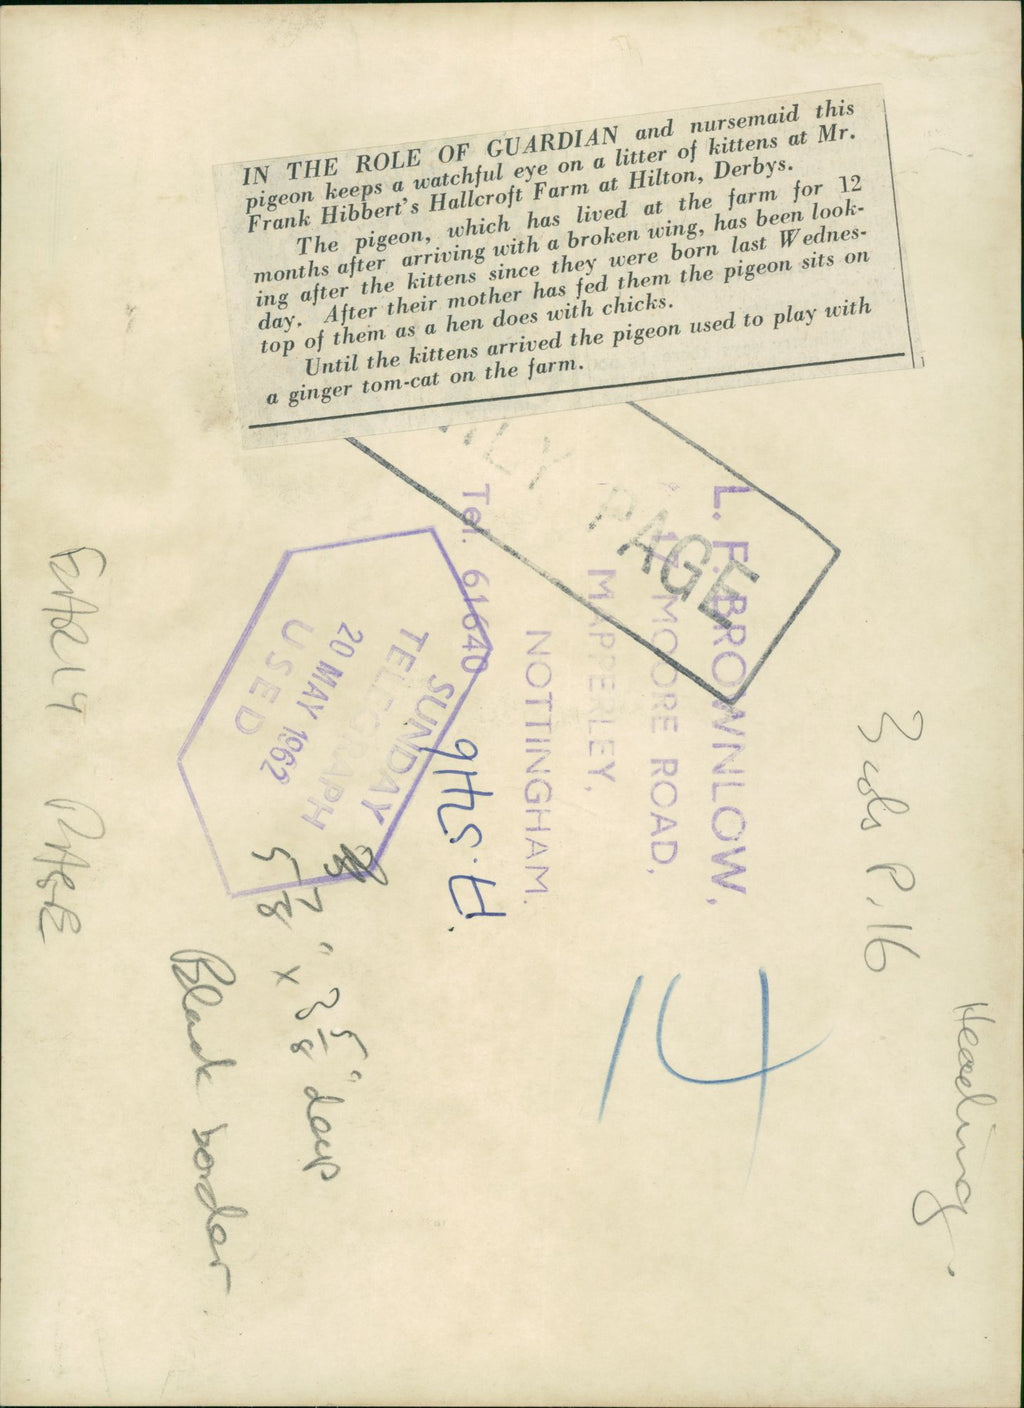 IN THE ROLE OF GUARDIAN and nursemaid this
pigeon keeps a watchful eye on a litter of kittens at Mr.
Frank Hibbert's Hallcroft Farm at Hilton, Derbys.
The pigeon, which has lived at the farm for 12
months after arriving with a broken wing, has been look-
ing after the kittens since they were born last Wednes-
day. After their mother has fed them the pigeon sits on
top of them as a hen does with chicks.
Until the kittens arrived the pigeon used to play with
a ginger tom-cat on the farm.
PAGE
L. F. BROWNLOW,
17 MOORE ROAD,
MAPPERLEY,
NOTTINGHAM.
Tel. 61640
SUNDAY
TELEGRAPH
20 MAY 1962
USED
Heading.
3 cols P.16
14
5 7/8" x 3 5/8" deep
Black border
EARLY PAGE